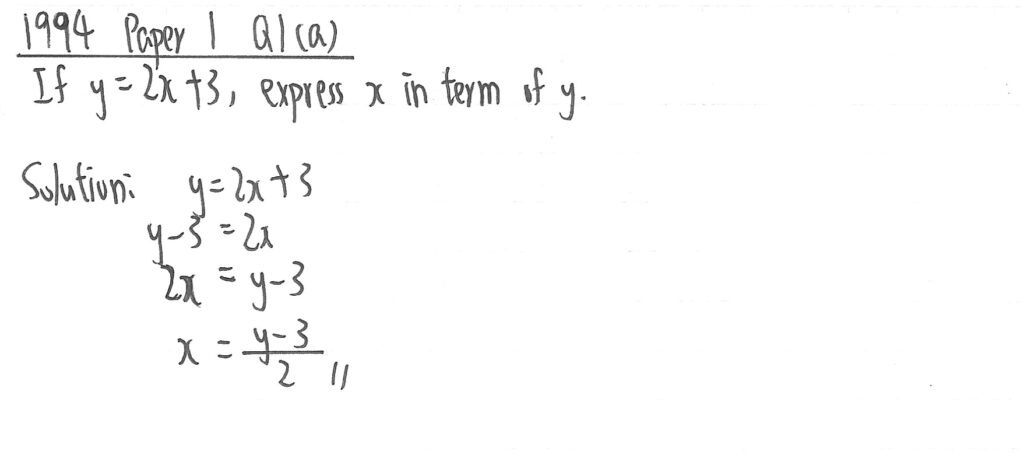 1994 Paper 1 Q1(a)
If y=2x+3, express x in term of y.
Solution: y=2x+3
y-3=2x
2x=y-3
x=\frac{y-3}{2} //